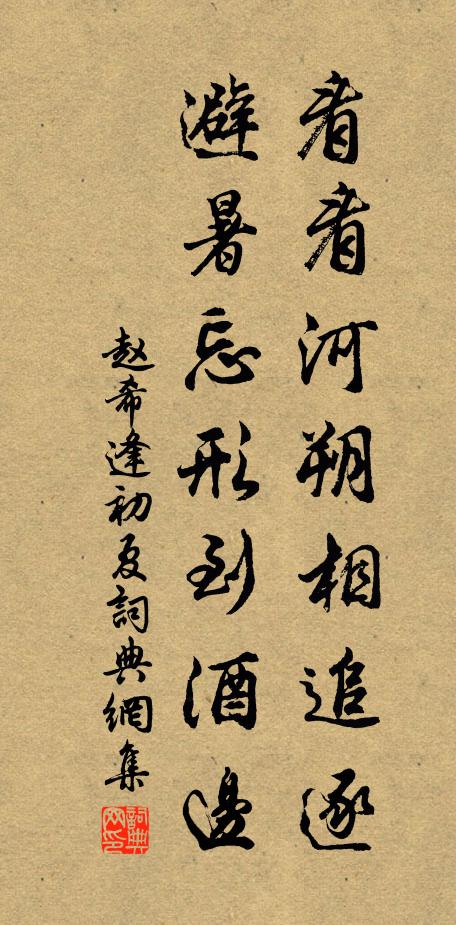 看看河朔相追逐
避暑忘形到酒邊
赵希逢初夏詞典網集
詞典网印